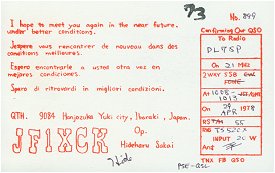 73
No. 899
I hope to meet you again in the near future.
under better conditions.
Jespere vous rencontrer de nouveau dans des
conditions meilleures.
Espero encontrarle a usted otra vez en
mejores condiciones.
Spero di ritrovardi in migliori condizioni.
QTH. 9084 Honjozuka Yuki city, Ibaraki, Japan.
JF1XCK
Op.
Hideharu Sakai
Confirming Our QSO
To Radio
On 21 MHz
2WAY SSB
At
1013
29 1978
APR
55
TS520X
INPUT 20 W
Ant
TNX FB QSO
PSE-QSL